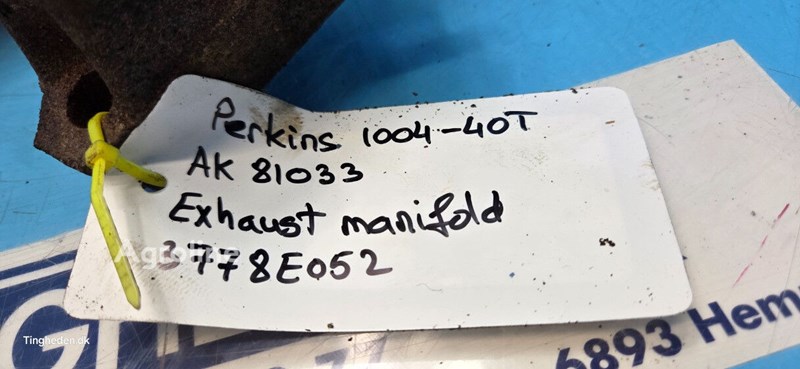 Perkins 1004-40T
AK 81033
Exhaust manifold
3778E052
Agroline
6893 Hem
Tingheden.dk